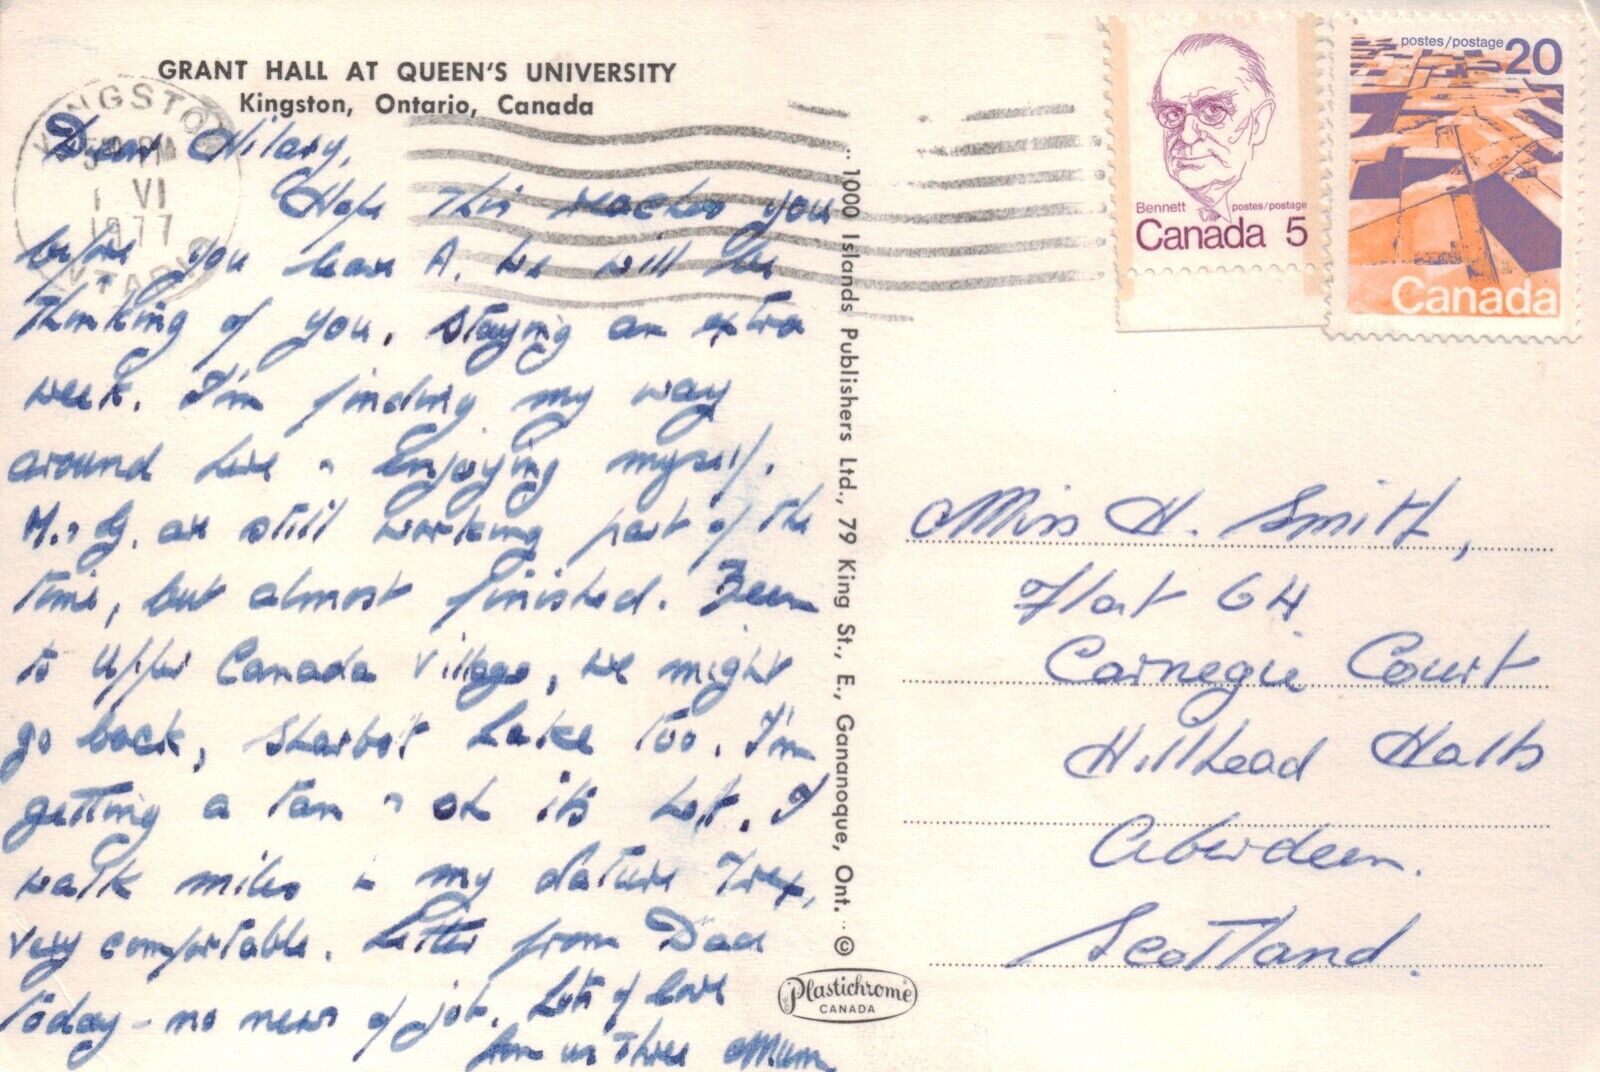 GRANT HALL AT QUEEN'S UNIVERSITY
Kingston, Ontario, Canada
KINGSTON
PM
1 VI
1977
ONTARIO
Dear Hilary,
Hope this reaches you
before you leave A. We will be
thinking of you, staying an extra
week. I'm finding my way
around here & enjoying myself.
M. & G. are still working part of the
time, but almost finished. Been
to Upper Canada Village, we might
go back, Sharbot Lake too. I'm
getting a tan & oh its hot. I
walk miles in my nature trex,
very comfortable. Letter from Dad
today - no news of job. Lots of love
from us three Mum
1000 Islands Publishers Ltd., 79 King St., E., Gananoque, Ont. ©
Plastichrome
CANADA
Bennett postes/postage
Canada 5
postes/postage 20
Canada
Miss H. Smith,
Flat 64
Carnegie Court
Hillhead Halls
Aberdeen.
Scotland.